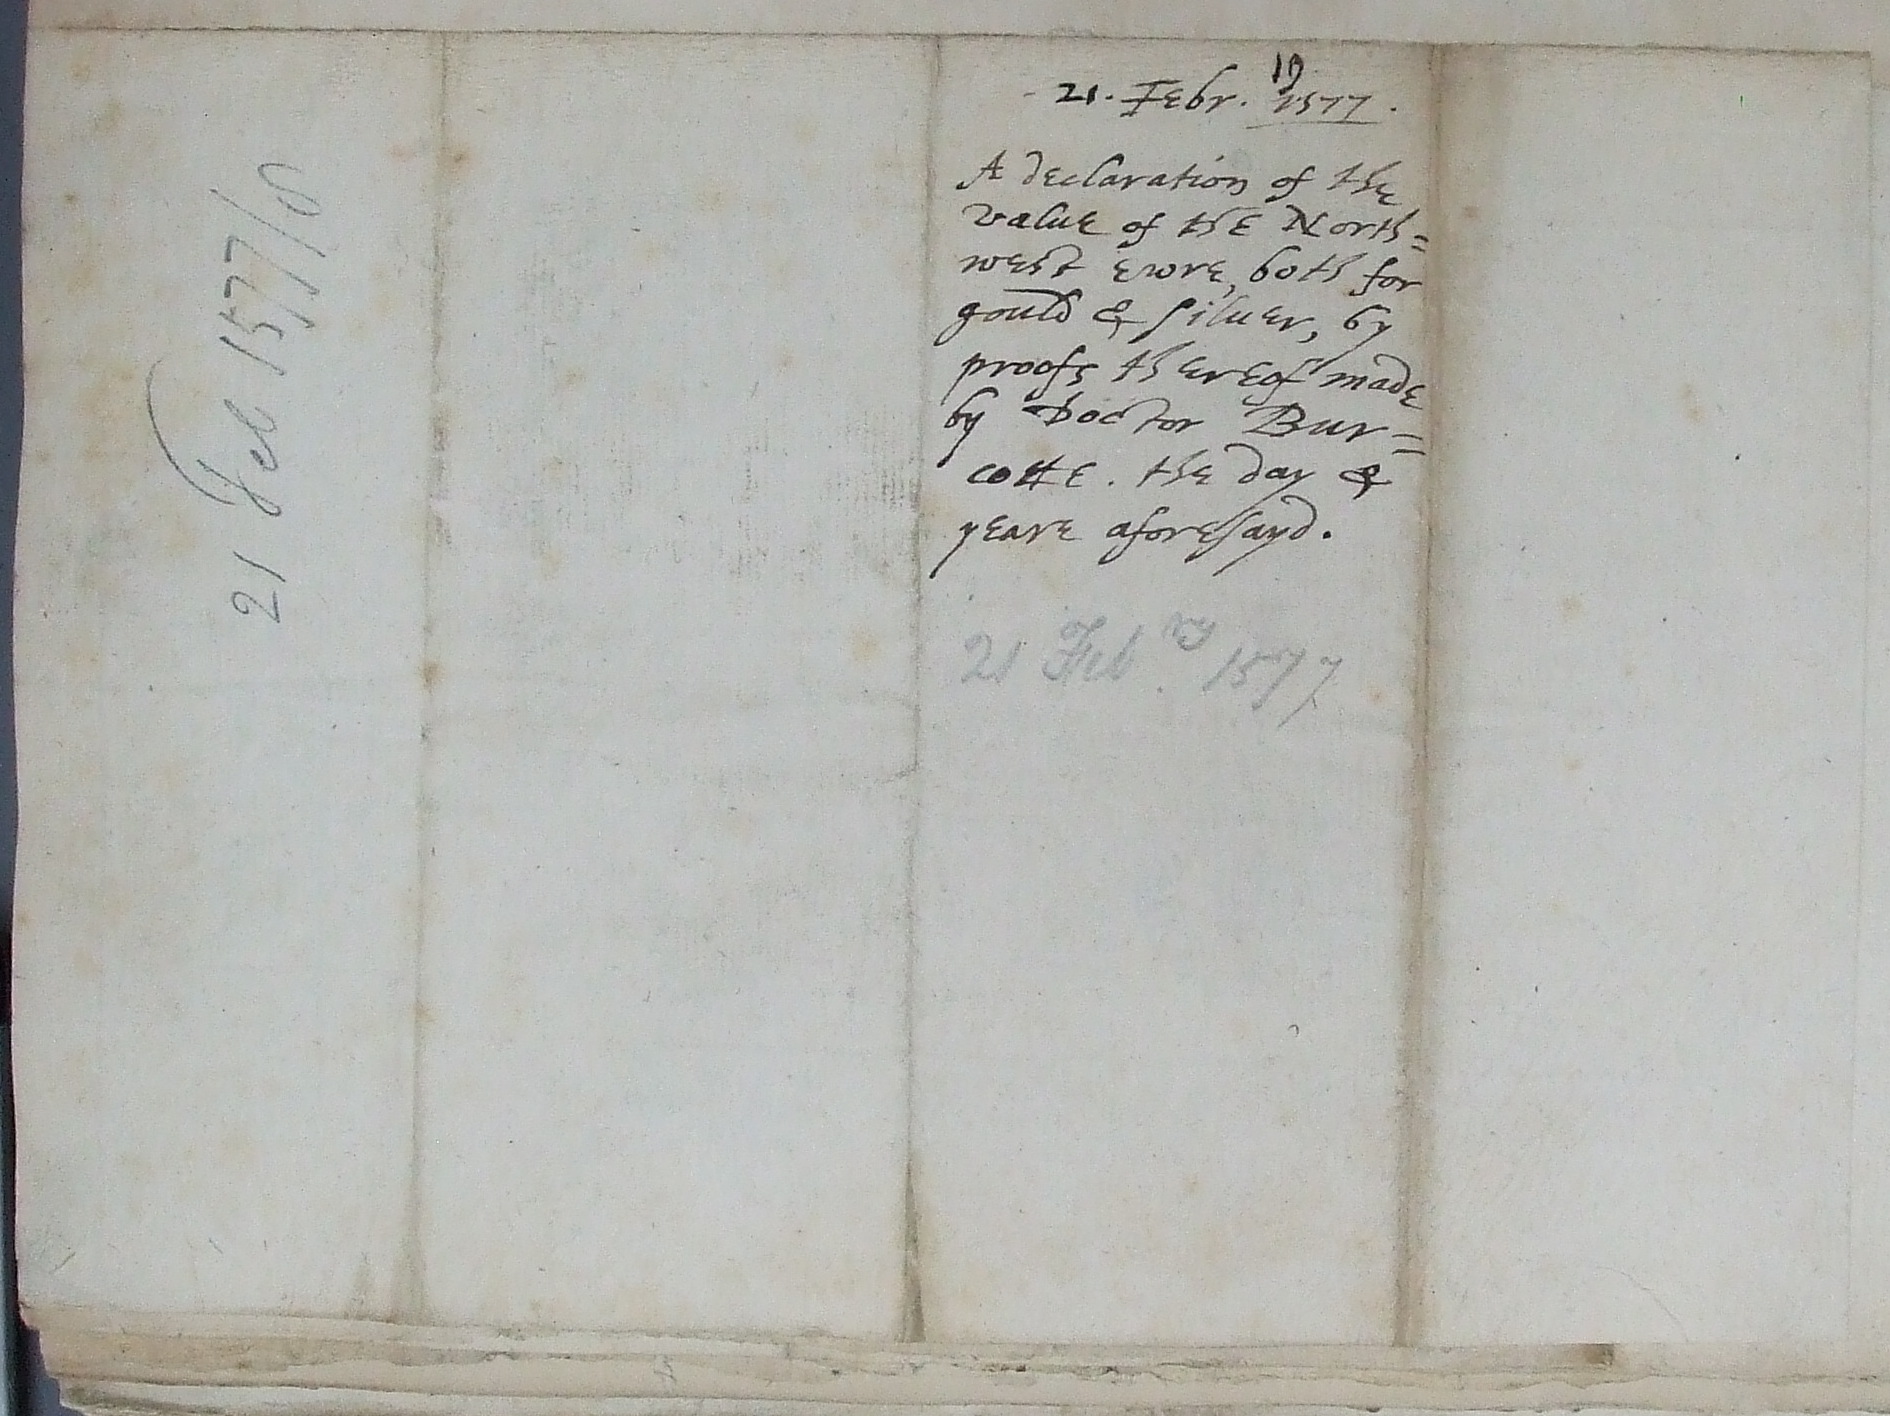 21 Feb 1577/8
19
21. Febr. 1577.
A declaration of the
value of the North=
west ewre, both for
gould & siluer, by
proofs thereof made
by Doctor Bur=
cotte. the day &
yeare aforesayd.
21 Feb ry 1577